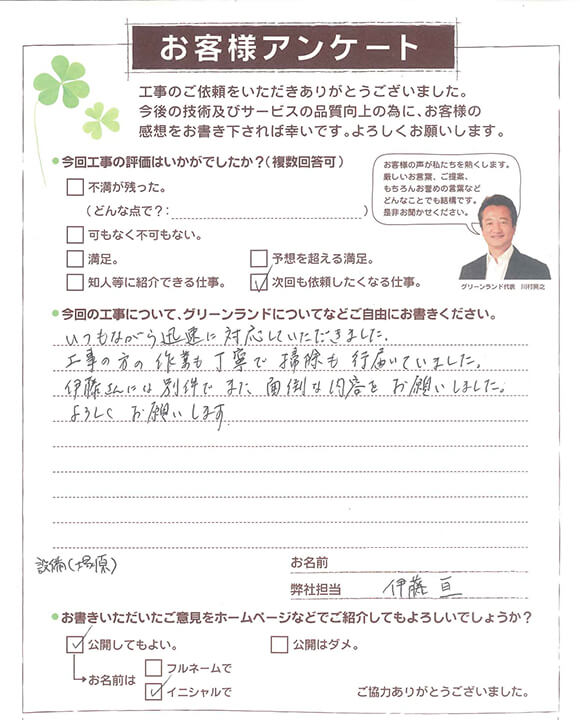 お客様アンケート
工事のご依頼をいただきありがとうございました。
今後の技術及びサービスの品質向上の為に、お客様の
感想をお書き下されば幸いです。よろしくお願いします。
今回工事の評価はいかがでしたか?(複数回答可)
不満が残った。
(どんな点で?: )
可もなく不可もない。
満足。
予想を超える満足。
知人等に紹介できる仕事。
次回も依頼したくなる仕事。
お客様の声が私たちを熱くします。
厳しいお言葉、ご提案、
もちろんお誉めの言葉など
どんなことでも結構です。
是非お聞かせください。
グリーンランド代表 川村晃之
今回の工事について、グリーンランドについてなどご自由にお書きください。
いつもながら迅速に対応していただきました。
工事の方の作業も丁寧で掃除も行届いていました。
伊藤さんには別件でまた面倒な内容をお願いしました。
よろしくお願いします
設備(塚原)
お名前
弊社担当 伊藤 亘
お書きいただいたご意見をホームページなどでご紹介してもよろしいでしょうか?
公開してもよい。
公開はダメ。
お名前は
フルネームで
イニシャルで
ご協力ありがとうございました。